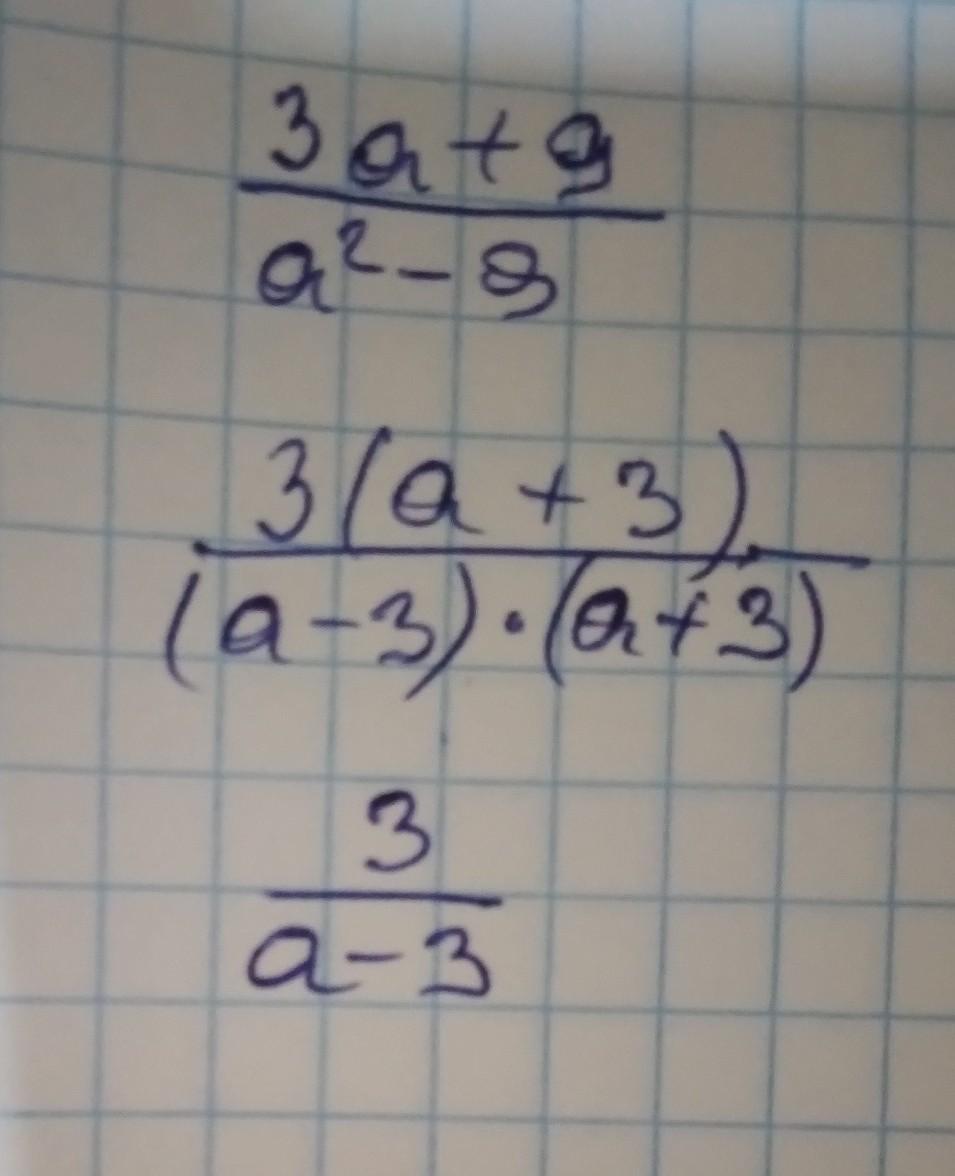 3a+9
a²-9
3(a+3)
(a-3)·(a+3)
3
a-3